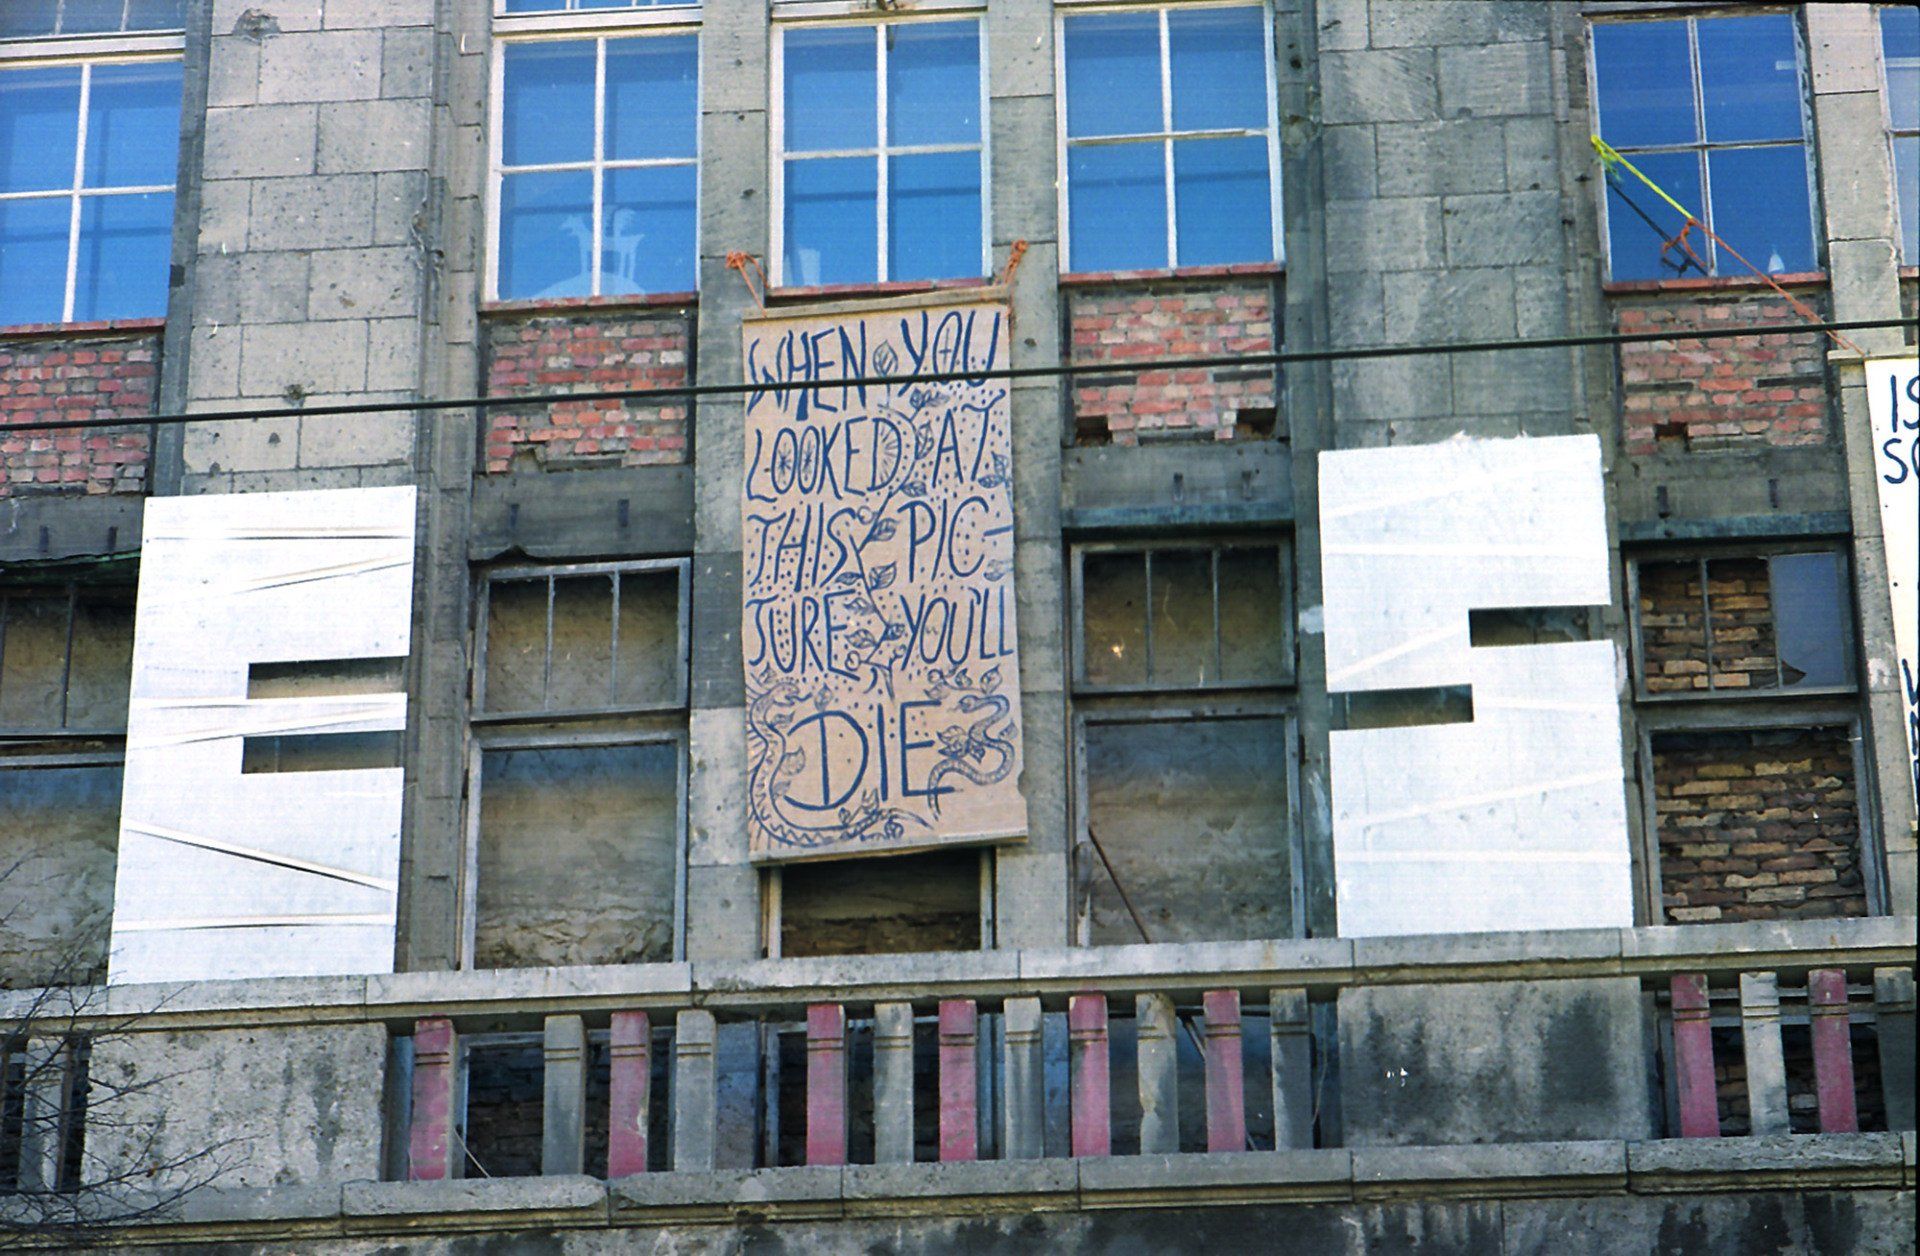 E
WHEN YOU
LOOKED AT
THIS PIC-
TURE YOU'LL
DIE
S
IS